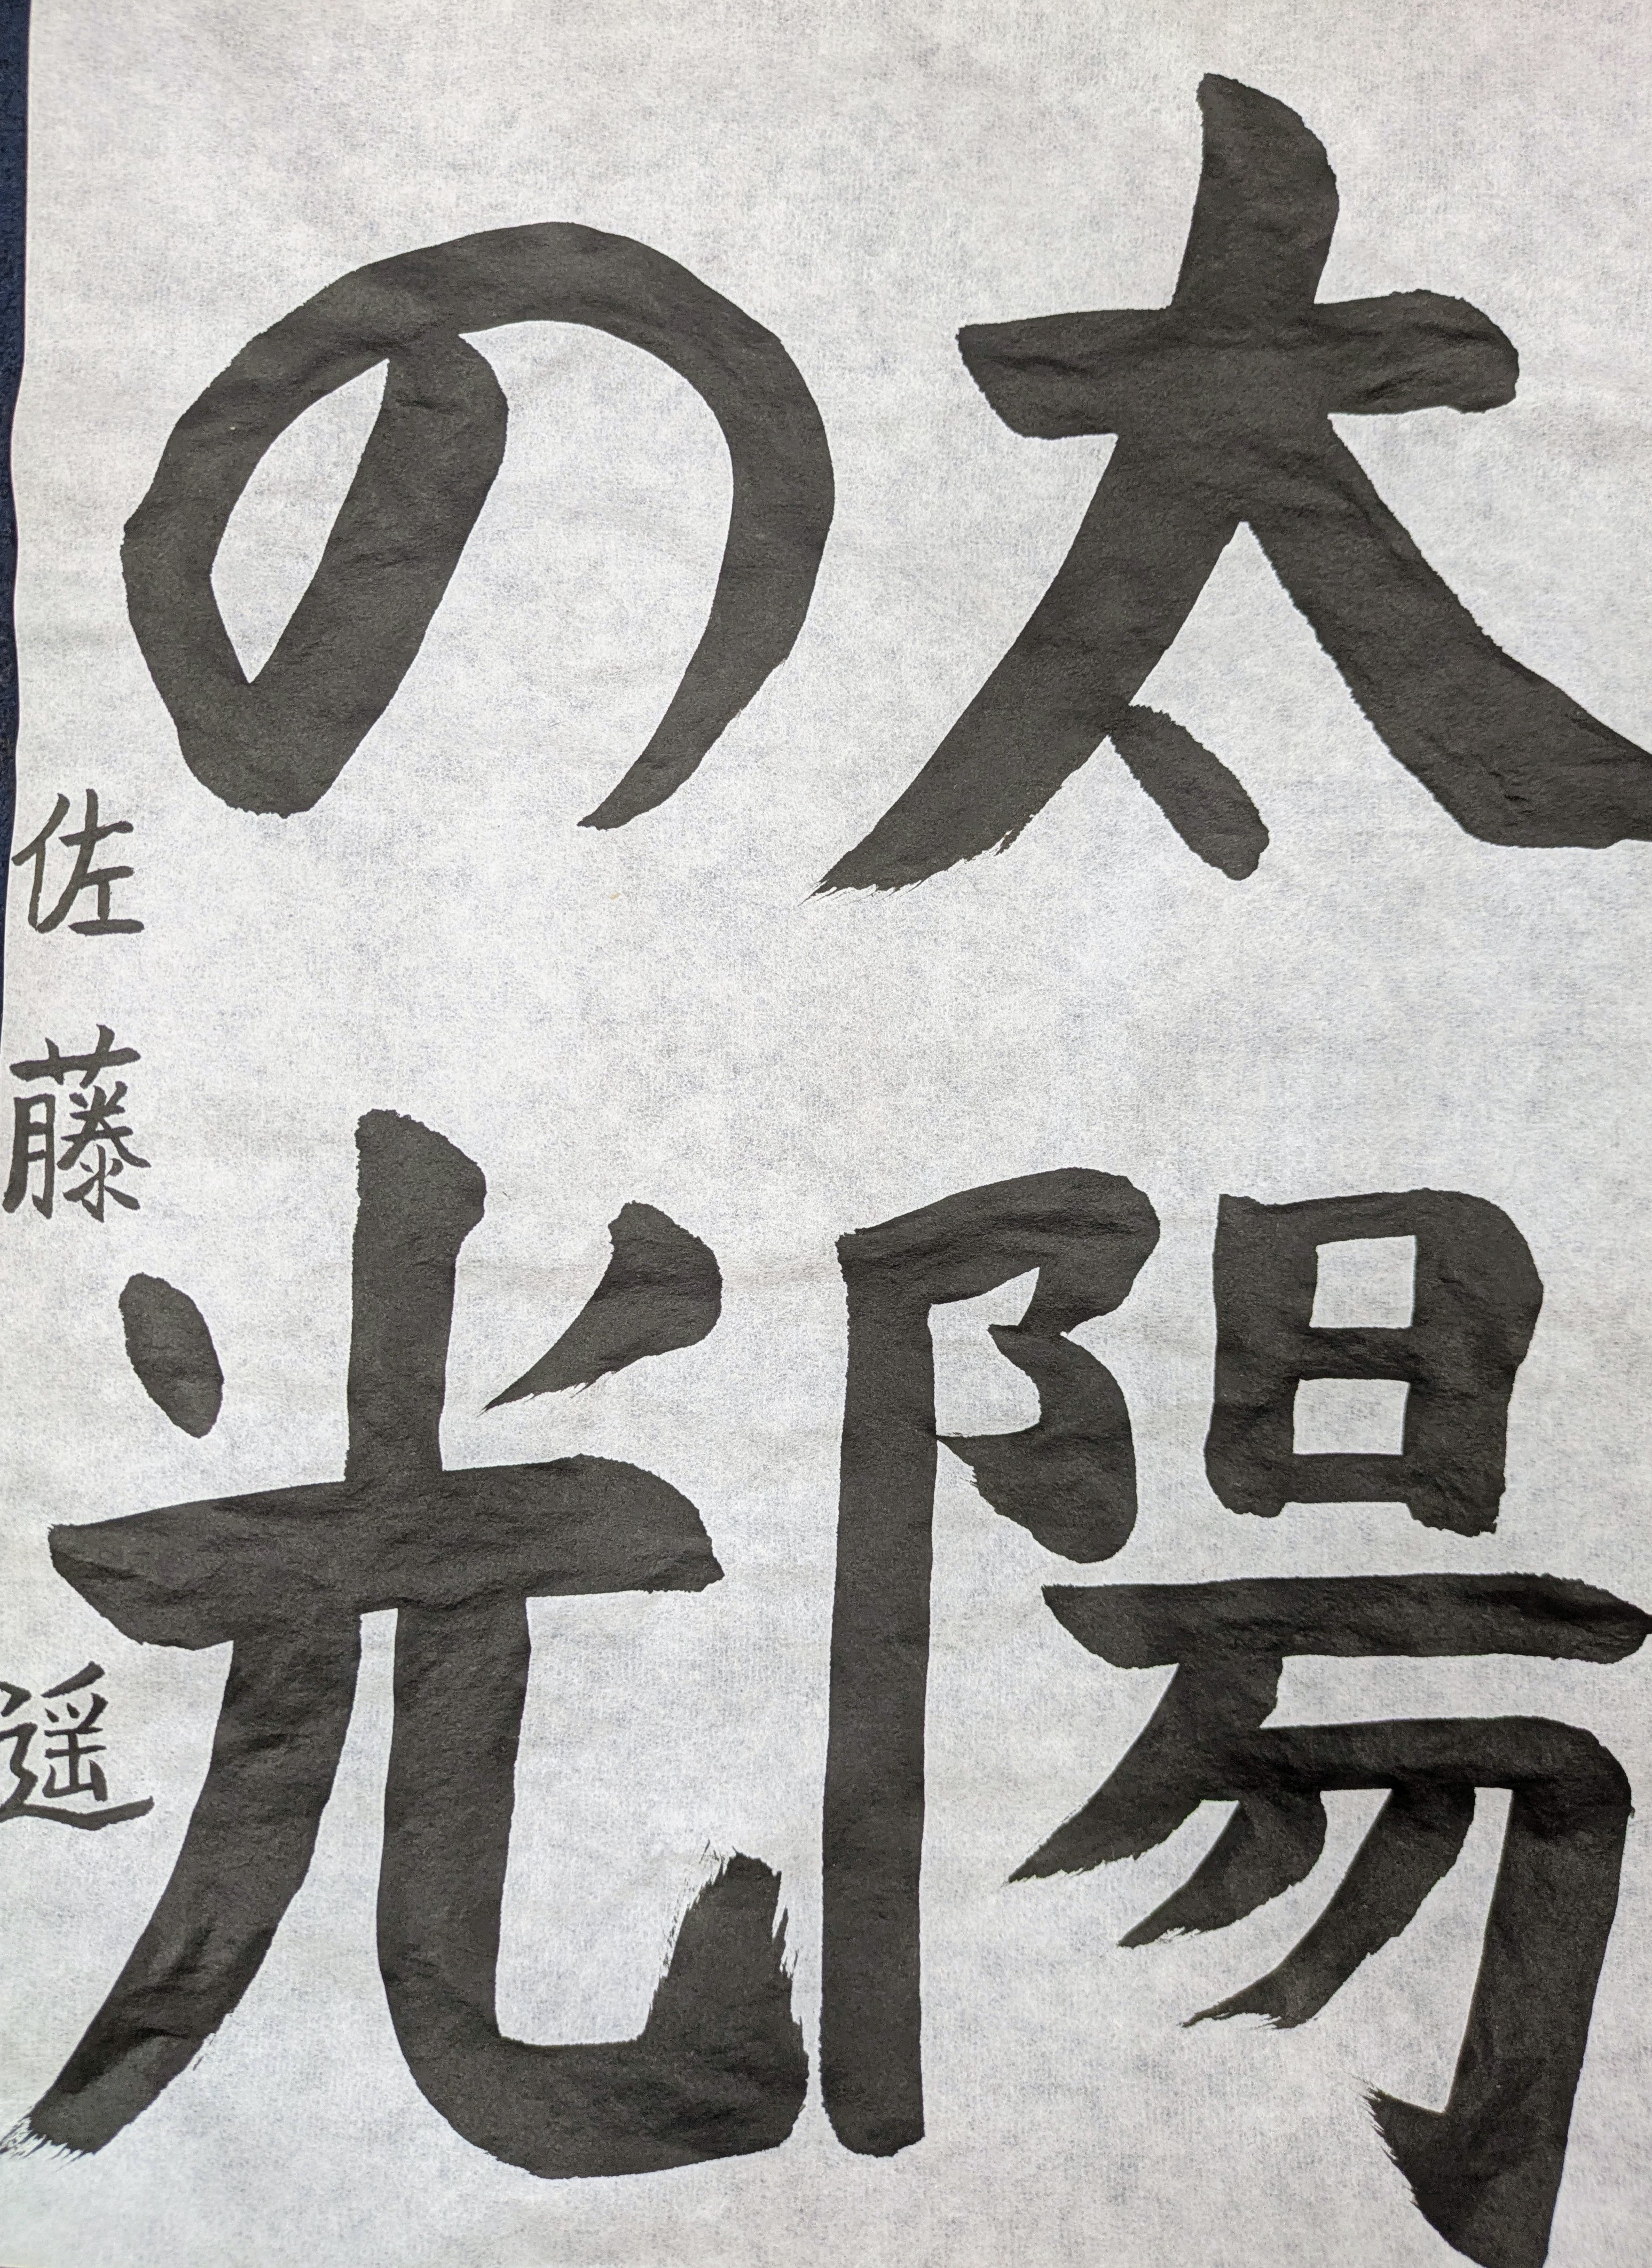 太陽
の光
佐藤遥